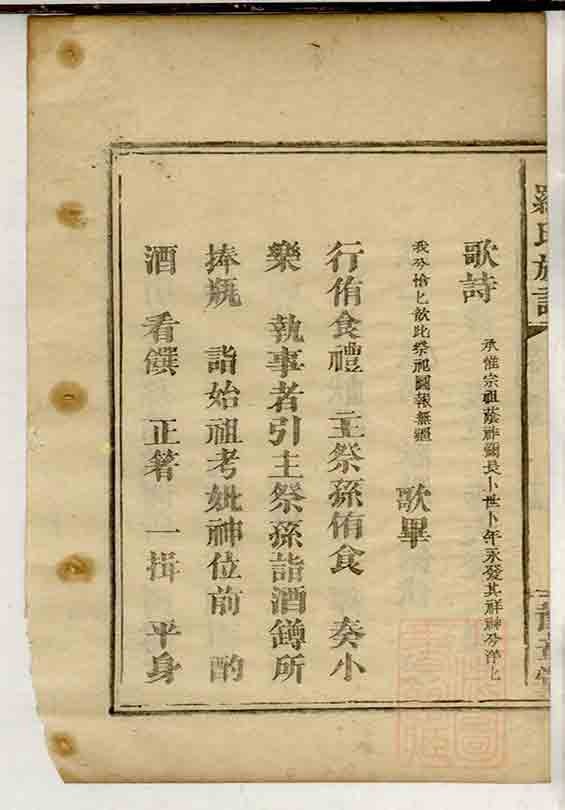 羅氏族譜
豫章堂
歌詩 承惟宗祖蔭祚獨長卜世卜年永發其祥神兮洋匕
我兮恰匕歆此祭祀圖報無疆 歌畢
行侑食禮 主祭孫侑食 奏小
樂 執事者引主祭孫詣酒罇所
捧瓶 詣始祖考妣神位前 酌
酒 看饌 正箸 一揖 平身